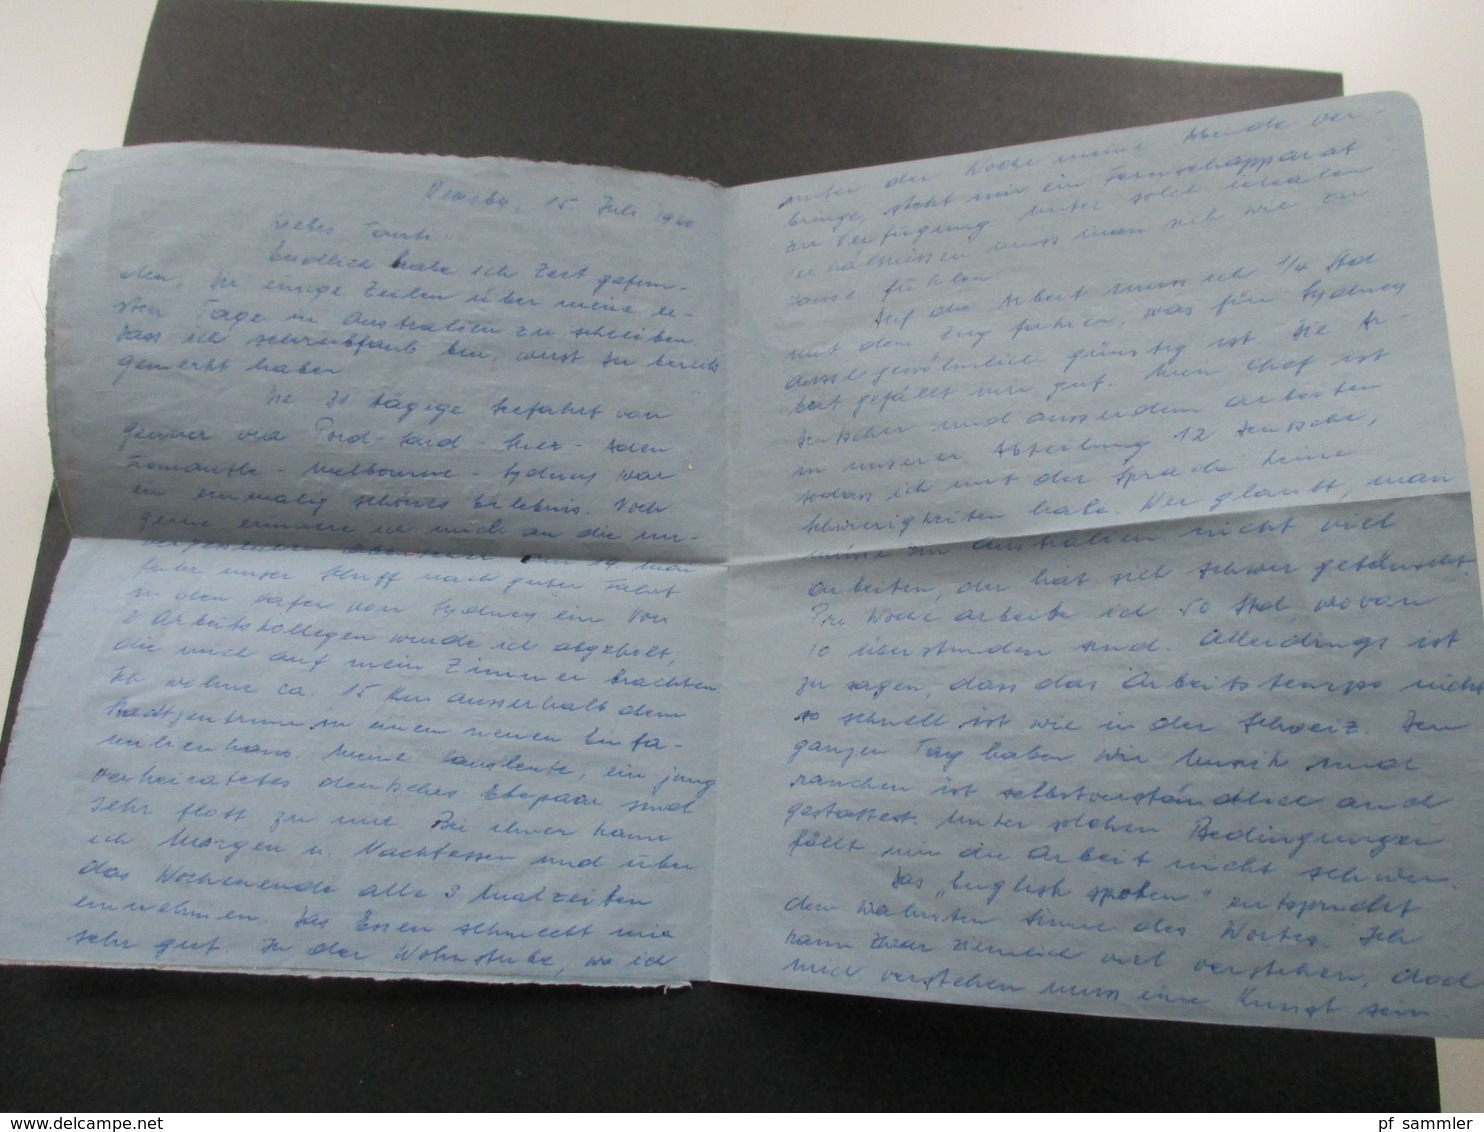 15. Juli 1960
Liebes Tanti
Endlich habe ich Zeit gefun-
den, Dir einige Zeilen über meine er-
sten Tage in Australien zu schreiben.
Dass ich schreibfaul bin, wirst Du bereits
gemerkt haben
Die 31 tägige Seefahrt von
Genua via Port-Said - Suez - Aden
Fremantle - Melbourne - Sydney war
ein einmalig schönes Erlebnis. Noch
gerne erinnere ich mich an die un-
Am 19. Mai
fuhr unser Schiff nach guter Fahrt
in den Hafen von Sydney ein. Von
2 Arbeitskollegen wurde ich abgeholt,
die mich auf mein Zimmer brachten
Ich wohne ca. 15 Km ausserhalb dem
Stadtzentrum in einem neuen Einfa-
milienhaus. Meine Hausleute, ein jung
verheiratetes deutsches Ehepaar sind
sehr flott zu mir. Bei ihnen kann
ich Morgen u. Nachtessen und über
das Wochenende alle 3 Mahlzeiten
einnehmen. Das Essen schmeckt mir
sehr gut. In der Wohnstube, wo ich
unter der Woche meine Abende ver-
bringe, steht mir ein Fernsehapparat
zur Verfügung. Unter solch idealen
Verhältnissen muss man sich wie zu
Hause fühlen
Auf die Arbeit muss ich 1/4 Std
mit dem Zug fahren, was für Sydney
aussergewöhnlich günstig ist. Die Ar-
beit gefällt mir gut. Mein Chef ist
Deutscher und ausserdem arbeiten
in unserer Abteilung 12 Deutsche,
sodass ich mit der Sprache keine
Schwierigkeiten habe. Wer glaubt, man
müsse in Australien nicht viel
arbeiten, der hat sich schwer getäuscht.
Pro Woche arbeite ich 50 Std, wovon
10 Überstunden sind. Allerdings ist
zu sagen, dass das Arbeitstempo nicht
so schnell ist wie in der Schweiz. Den
ganzen Tag haben wir Musik und
rauchen ist selbstverständlich auch
gestattet. Unter solchen Bedingungen
fällt mir die Arbeit nicht schwer.
Das "English spoken" entspricht
dem wahrsten Sinne des Wortes. Ich
kann zwar ziemlich viel verstehen, doch
mich verstehen muss eine Kunst sein.
pf_sammler